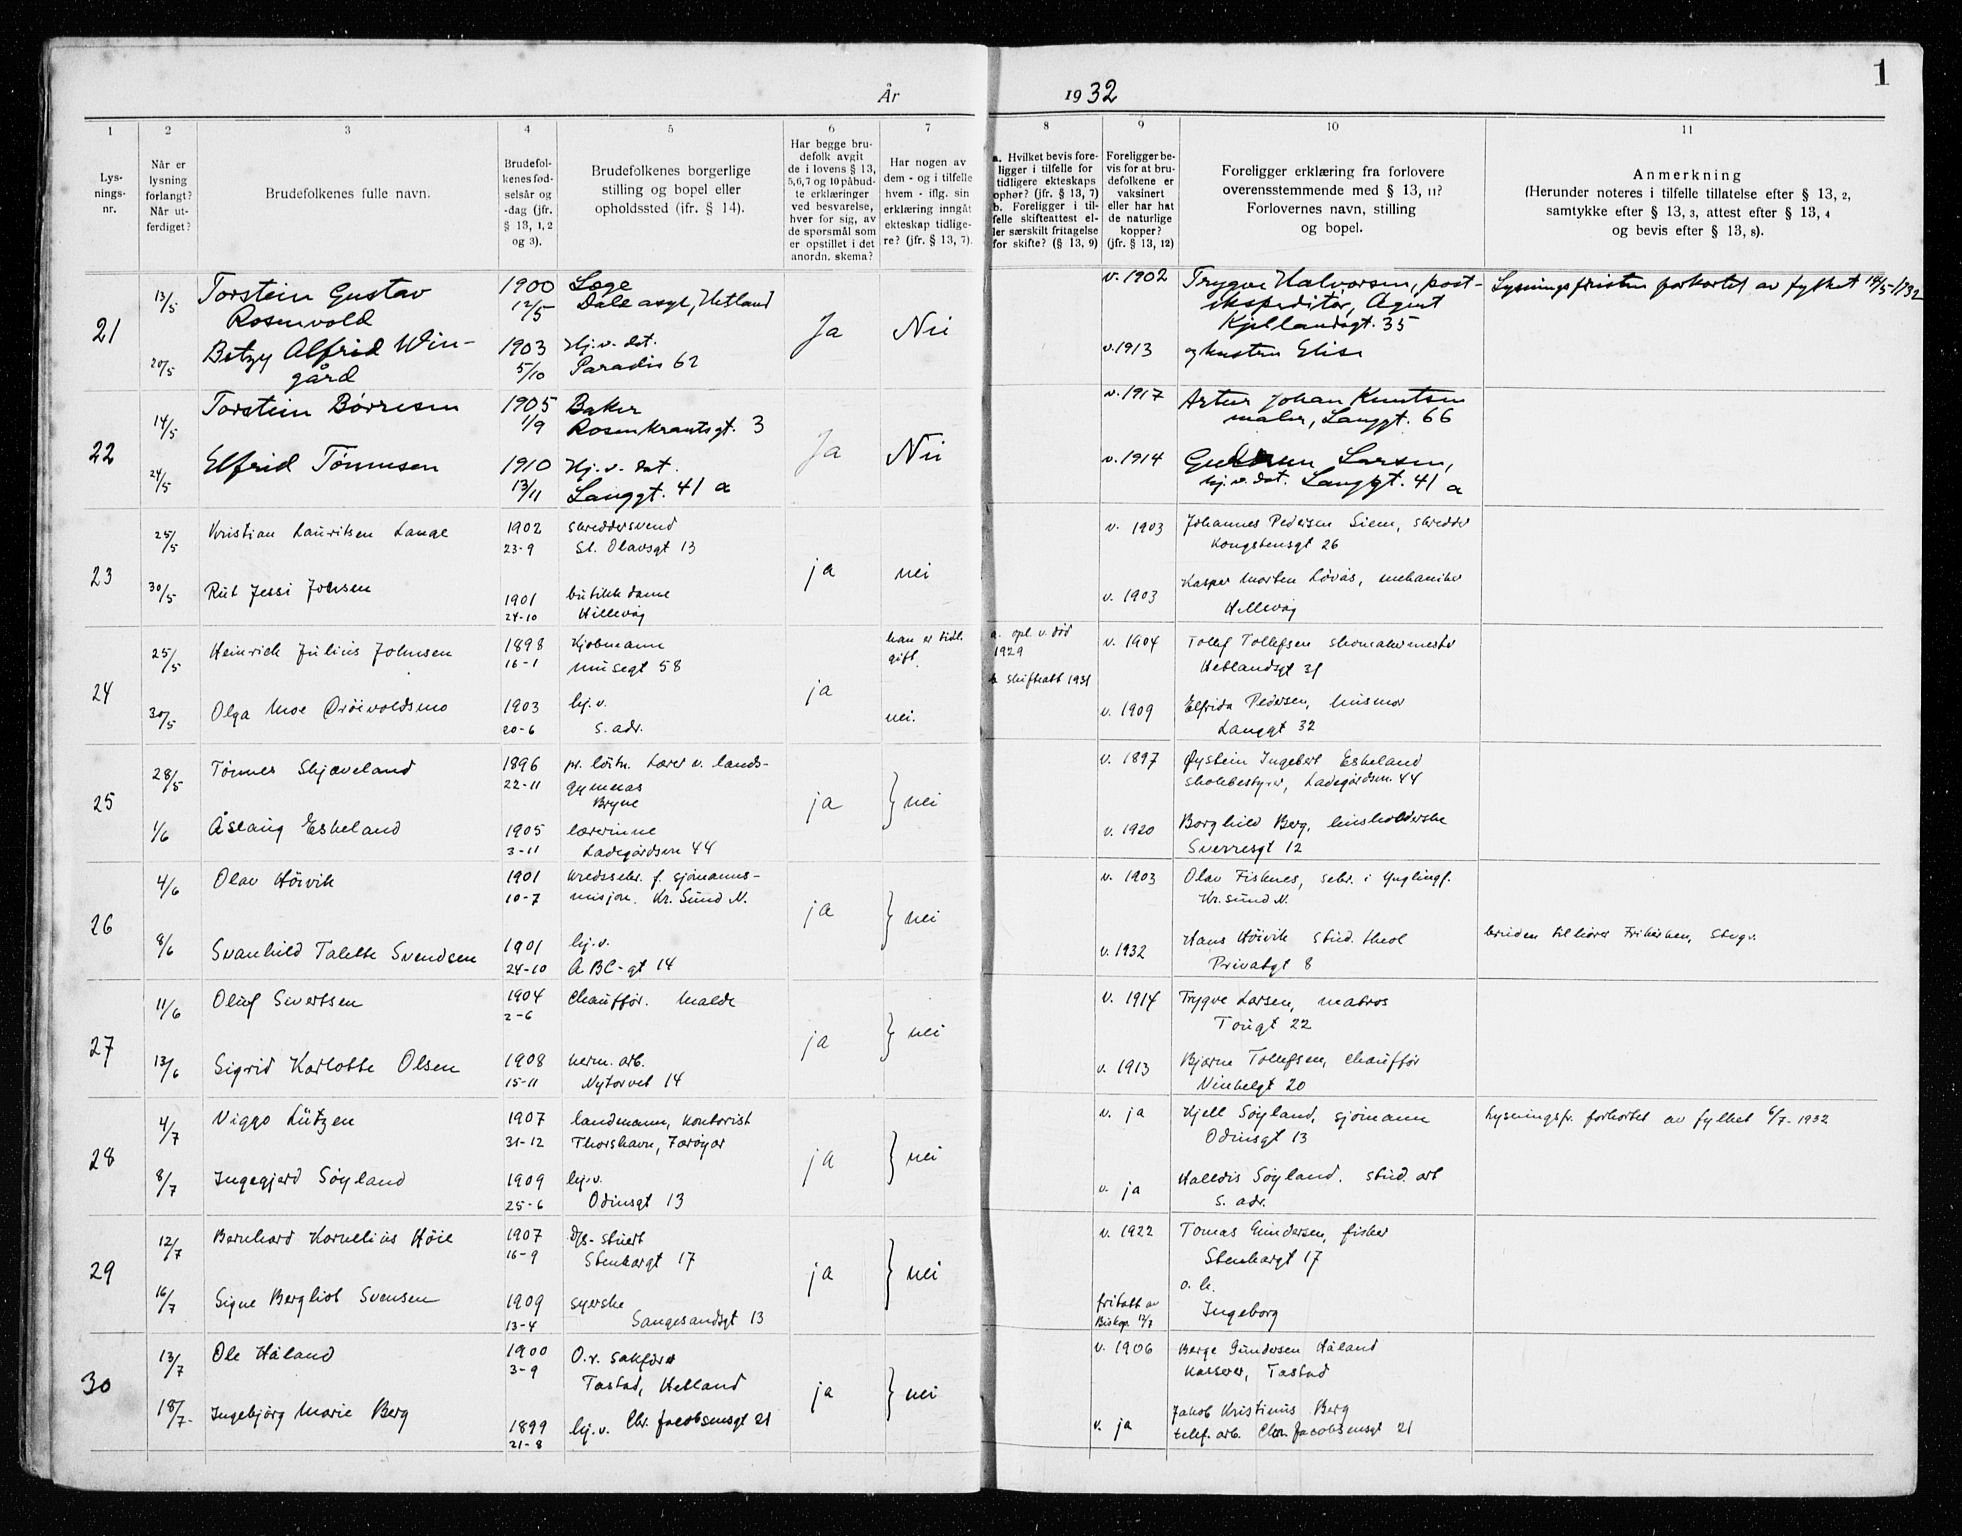 År 1932
1
1 2 3 4 5 6 7 8 9 10 11
Lys-
nings-
nr.
Når er
lysning
forlangt?
Når ut-
ferdiget?
Brudefolkenes fulle navn.
Brudefol-
kenes fød-
selsår og
-dag (jfr.
§ 13, 1, 2
og 3).
Brudefolkenes borgerlige
stilling og bopel eller
opholdssted (jfr. § 14).
Har begge bru-
defolk avgit
de i lovens § 13,
5,6,7 og 10 påbud-
te erklæringer
ved besvarelse,
hver for sig, av
de spørsmål som
er opstillet i det
anordn. skema?
Har nogen av
dem - og i tilfelle
hvem - iflg. sin
erklæring inngåt
ekteskap tidlige-
re? (jfr. § 13, 7).
a. Hvilket bevis fore-
ligger i tilfelle for
tidligere ekteskaps
ophør? (jfr. § 13, 7)
b. Foreligger i til-
felle skifteattest el-
ler særskilt fritagelse
for skifte? (§ 13, 9)
Foreligger be-
vis for at bru-
defolkene er
vaksinert
eller har hat
de naturlige
kopper?
(jfr. § 13, 12)
Foreligger erklæring fra forlovere
overensstemmende med § 13, 11?
Forlovernes navn, stilling
og bopel.
Anmerkning
(Herunder noteres i tilfelle tillatelse efter § 13, 2,
samtykke efter § 13, 3, attest efter § 13, 4
og bevis efter § 13, 8).
21
13/5 Torstein Gustav 1900 Læge v. 1902 Trygve Halvorsen, post- Lysningsfristen forkortet av fylket 14/5-1932
Rosenvold 12/5 Dale asyl, Hetland ekspeditør, Agent
Kjellandsgt. 35
Ja Nei
20/5 Betzy Alfrid Win- 1903 Hj. v. dat. v. 1913 og hustru Elise
gård 5/10 Paradis 62
22
14/5 Torstein Børresen 1905 Baker v. 1917 Artur Johan Knutsen
1/9 Rosenkrantsgt. 3 maler, Langgt. 66
Ja Nei
24/5 Elfrid Tønnesen 1910 Hj. v. dat. v. 1914 Gudrun Larsen,
13/11 Langgt. 41 a hj. v. dat. Langgt. 41 a
23
25/5 Kristian Lauritsen Lange 1902 skreddersvend v. 1903 Johannes Pedersen Siem, skredder
23-9 St. Olavsgt 13 Kongstensgt 26
ja nei
30/5 Rut Jessi Johsen 1901 butikkdame v. 1903 Kasper Morten Løvås, mekaniker
24-10 Hillevåg Hillevåg
24
25/5 Heinrich Julius Johnsen 1898 Kjøbmann han er tidl. a. opl. v. død v. 1904 Tollef Tollefsen skomakermester
16-1 Musegt 58 gift. 1929 Hetlandsgt 21
ja b. skifteatt 1931
30/5 Olga Moe Drøivoldsmo 1903 hj. v. nei. v. 1909 Elfrida Pedersen, husmor
20-6 s. adr. Langgt 32
25
28/5 Tønnes Skjæveland 1896 pr. løitn. Lærer v. lands- v. 1897 Øystein Ingebert Eskeland
22-11 gymnas skolebestyrer, Ladegårdsvn. 44
Bryne
ja nei
1/6 Åslaug Eskeland 1905 lærerinne v. 1920 Borghild Berg, husholderske
3-11 Ladegårdsvn 44 Sverresgt 12
26
4/6 Olav Høivik 1901 kredssekr. f. sjømanns- v. 1903 Olav Fisknes, sekr. i Ynglingf.
10-7 misjon. Kr. Sund N. Kr. sund N.
ja nei
8/6 Svanhild Talette Svendsen 1901 hj. v. v. 1932 Hans Høivik stud. theol bruden tilhører Frikirken, Stvgr.
24-10 ABC-gt 14 Privatgt 8
27
11/6 Oluf Sivertsen 1904 Chauffør. Malde v. 1914 Trygve Larsen, matros
2-6 Tougt 22
ja nei
13/6 Sigrid Karlotte Olsen 1908 herm. arb. v. 1913 Bjarne Tollefsen, Chauffør
15-11 Nytorvet 14 Vinkelgt 20
28
4/7 Viggo Lützen 1907 landmann, kontorist v. ja Kjell Søyland, sjømann Lysningsfr. forkortet av fylket 6/7-1932
31-12 Thorshavn, Færøyar Odinsgt 13
ja nei
8/7 Ingegjerd Søyland 1909 hj. v. v. ja Halldis Søyland. stud. art
25-6 Odinsgt 13 s. adr.
29
12/7 Bernhard Kornelius Høie 1907 D/s- stuert v. 1922 Tomas Gundersen, fisker
16-9 Stenkargt 17 Stenkargt 17
ja nei o. h.
16/7 Signe Bergliot Svensen 1909 syerske fritatt av Ingeborg
13-4 Sangesandsgt 13 Biskop 12/7
30
13/7 Ole Håland 1900 O.r. sakfører v. 1906 Berge Gundersen Håland
3-9 Tastad, Hetland kasserer, Tastad
ja nei
18/7 Ingebjørg Marie Berg 1899 hj. v. Chr. Jacobsensgt 21 v. ja Jakob Kristinus Berg
21-8 telef. arb. Chr. Jacobsensgt 21